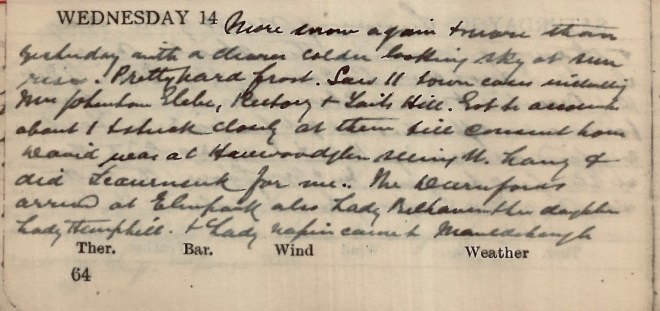 WEDNESDAY 14 More snow again & more than
yesterday with a clearer colder looking sky at sun
rise. Pretty hard frost. Saw 11 town cases including
Mrs Johnston Glebe, Rectory & Hill. Got to accounts
about 1 & stuck closely at them till consult hour
David was at seeing W. Laing &
did for me.. The Durnfords
arrived at Elmpark also Lady Belhaven the daughter
Lady Hemphill. & Lady Napier came to
Ther. Bar. Wind Weather
64